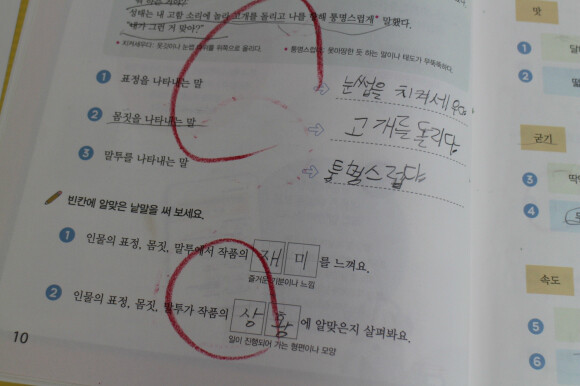 성태는 내 고함 소리에 놀라 고개를 돌리고 나를 향해 퉁명스럽게* 말했다.
"얘가 그런 거 맞아?"
* 치켜세우다: 옷깃이나 눈썹 등을 위쪽으로 올리다.
* 퉁명스럽다: 못마땅한 듯 하는 말이나 태도가 무뚝뚝하다.
1 표정을 나타내는 말
눈썹을 치켜세
2 몸짓을 나타내는 말
고개를 돌리다
3 말투를 나타내는 말
빈칸에 알맞은 낱말을 써 보세요.
1 인물의 표정, 몸짓, 말투에서 작품의 재미를 느껴요.
즐거운 기분이나 느낌
2 인물의 표정, 몸짓, 말투가 작품의 상황에 알맞은지 살펴봐요.
일이 진행되어 가는 형편이나 모양
10
맛
1
2
굳기
3
4
속도
5
6